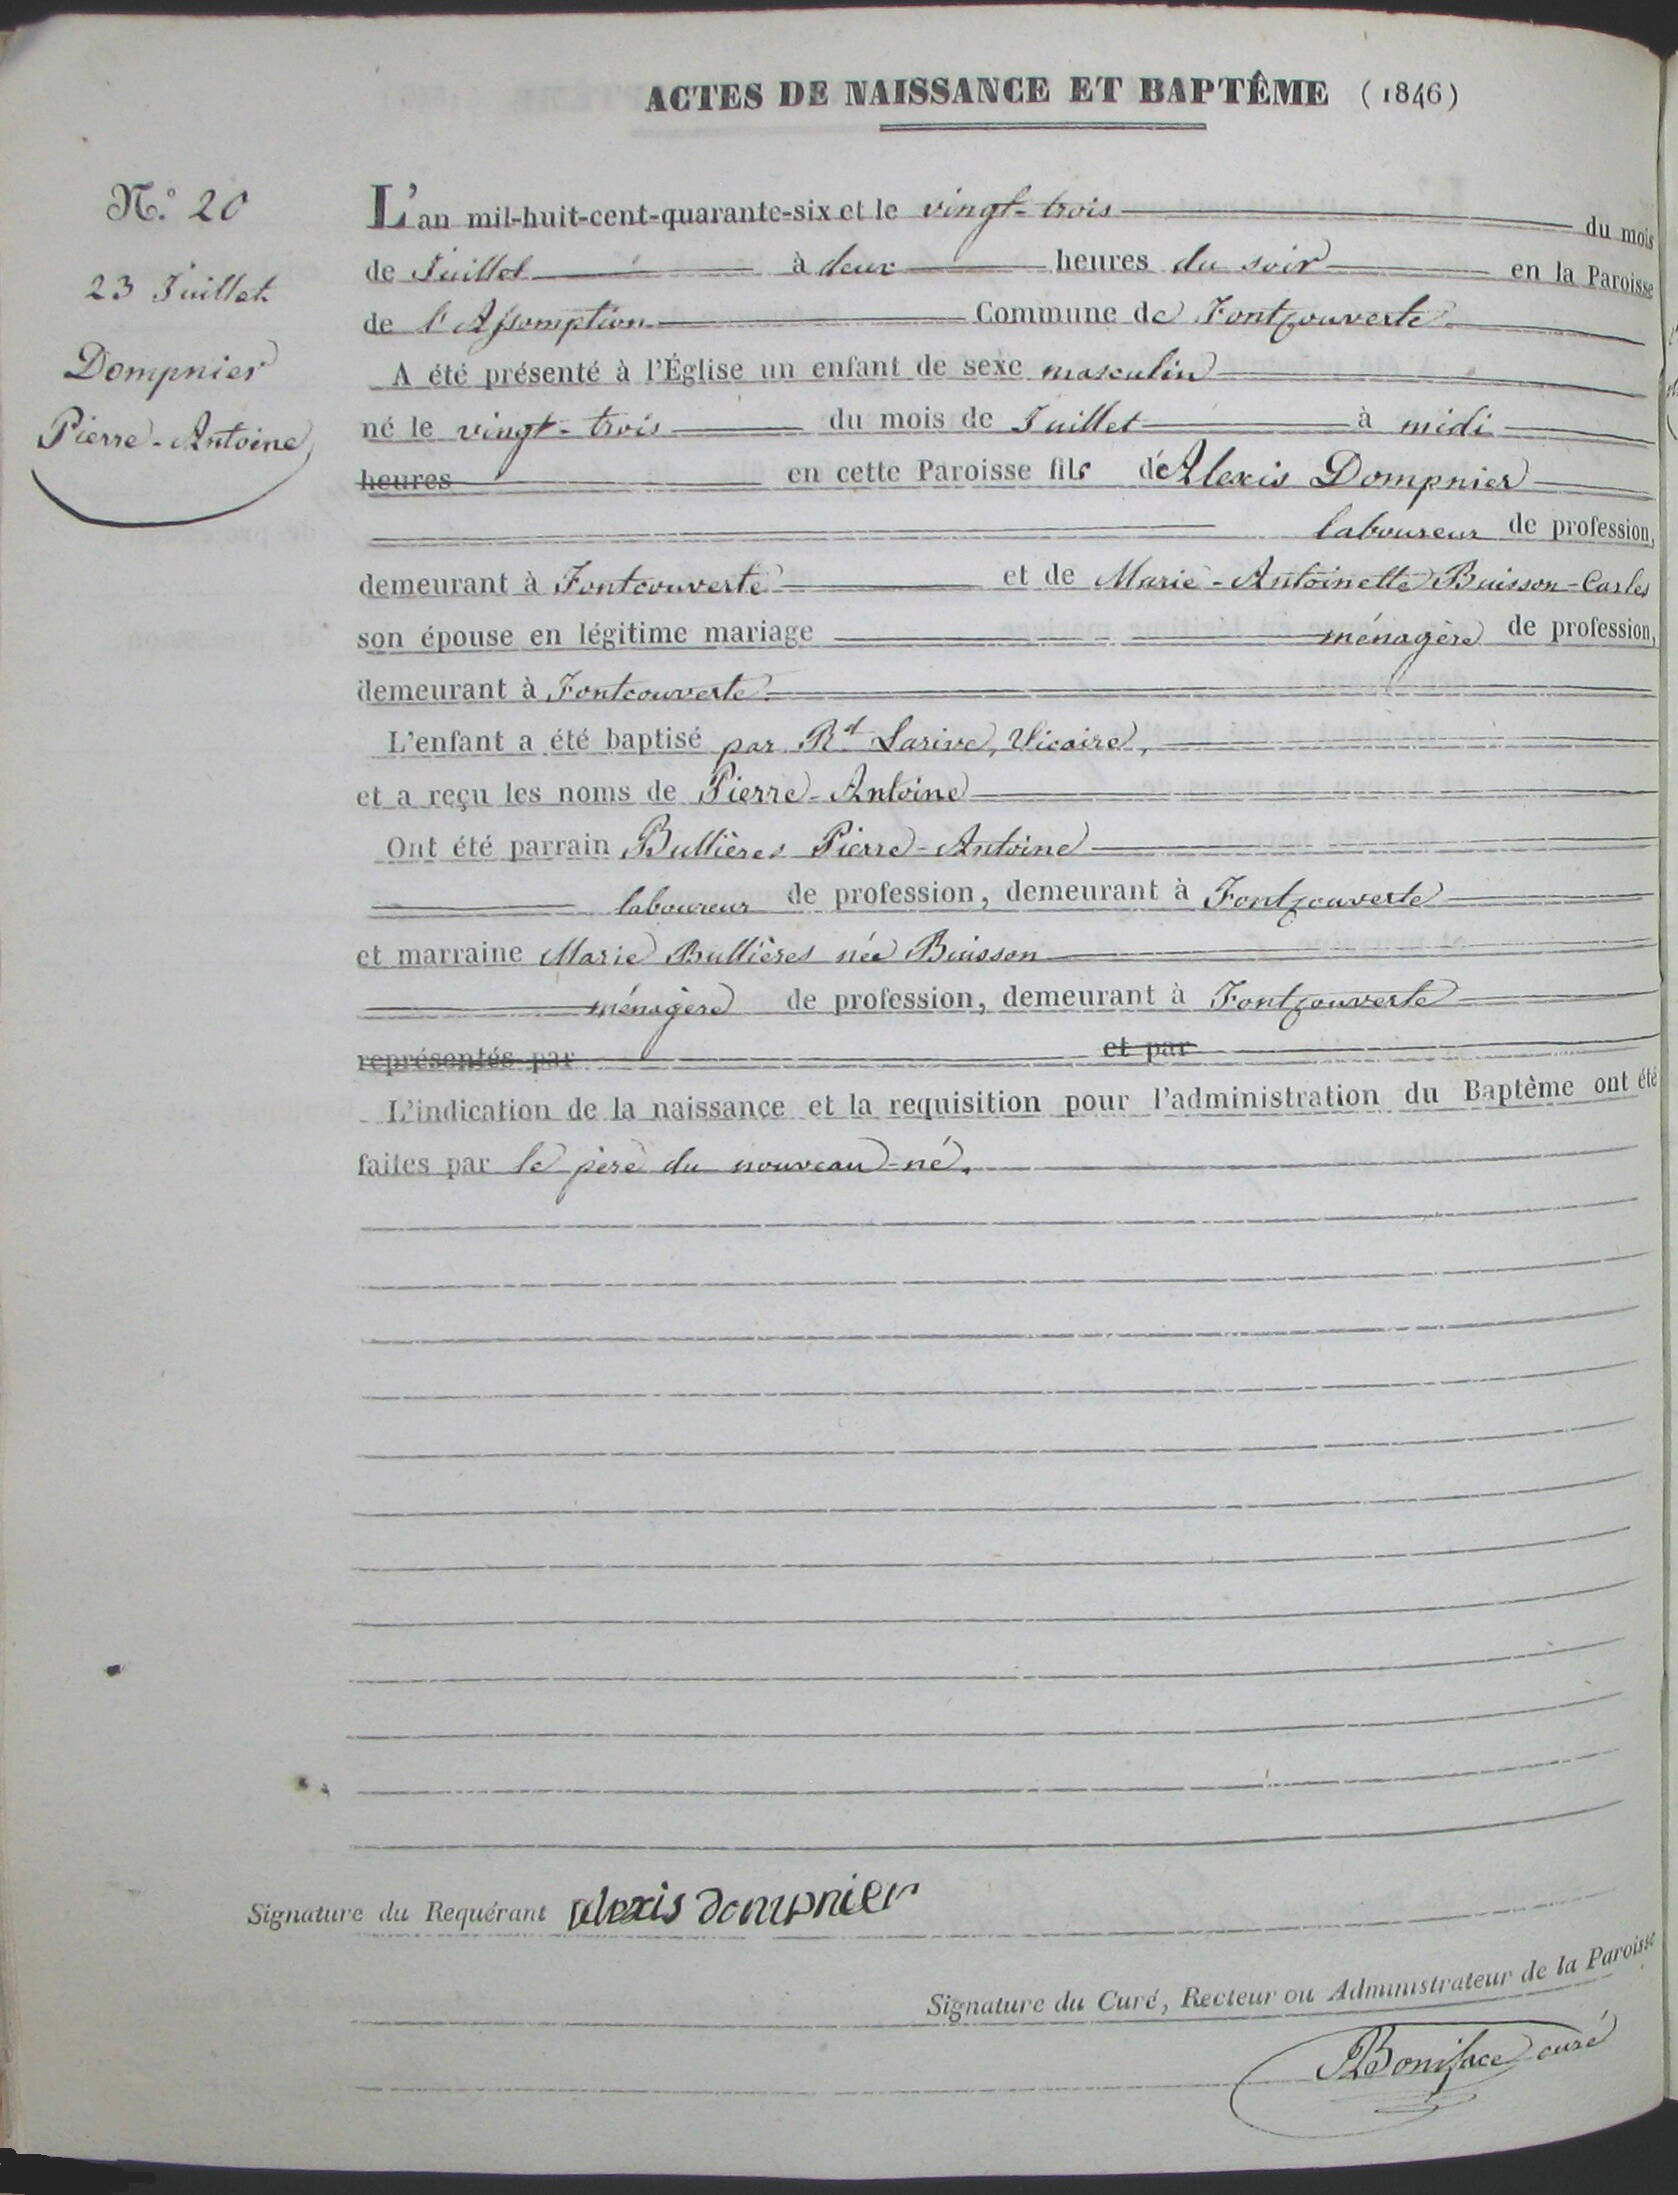 ACTES DE NAISSANCE ET BAPTÊME (1846)
N.° 20
23 Juillet
Dompnier
Pierre-Antoine
L'an mil-huit-cent-quarante-six et le vingt-trois du mois
de Juillet à deux heures du soir en la Paroisse
de l'Assomption Commune de Fontcouverte
A été présenté à l'Église un enfant de sexe masculin
né le vingt-trois du mois de Juillet à midi
heures en cette Paroisse fils d'Alexis Dompnier
laboureur de profession,
demeurant à Fontcouverte et de Marie-Antoinette Buisson-Carles
son épouse en légitime mariage ménagère de profession,
demeurant à Fontcouverte.
L'enfant a été baptisé par Rd Larive, Vicaire,
et a reçu les noms de Pierre-Antoine
Ont été parrain Bullières Pierre-Antoine
laboureur de profession, demeurant à Fontcouverte
et marraine Marie Bullières née Buisson
ménagère de profession, demeurant à Fontcouverte
représentés par et par
L'indication de la naissance et la requisition pour l'administration du Baptème ont été
faites par le père du nouveau-né.
Signature du Requérant alexis dompnier
Signature du Curé, Recteur ou Administrateur de la Paroisse
Boniface curé